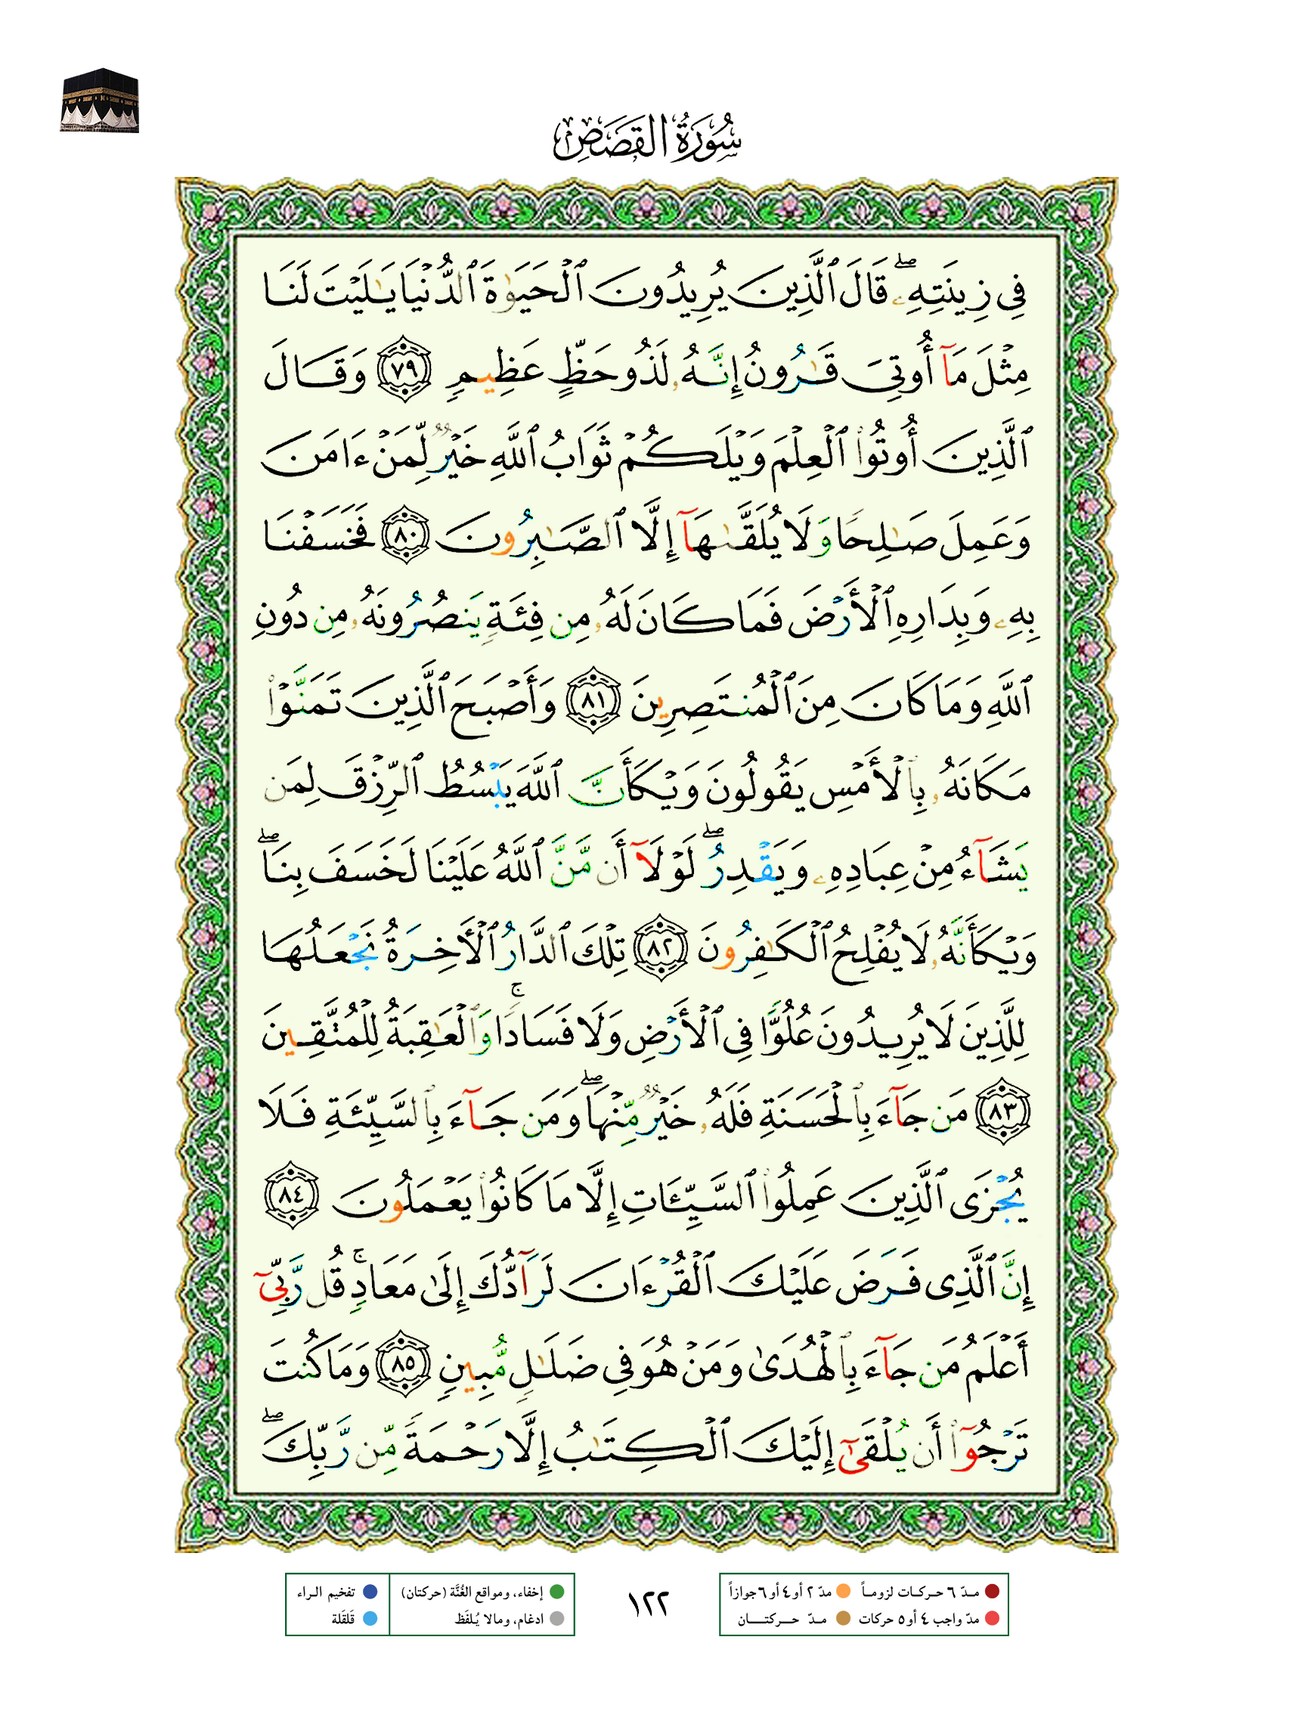 سُورَةُ القَصَصِ
فِى زِينَتِهِۦۖ قَالَ ٱلَّذِينَ يُرِيدُونَ ٱلْحَيَوٰةَ ٱلدُّنْيَا يَـٰلَيْتَ لَنَا
مِثْلَ مَآ أُوتِىَ قَـٰرُونُ إِنَّهُۥ لَذُو حَظٍّ عَظِيمٍ ٧٩ وَقَالَ
ٱلَّذِينَ أُوتُوا۟ ٱلْعِلْمَ وَيْلَكُمْ ثَوَابُ ٱللَّهِ خَيْرٌ لِّمَنْ ءَامَنَ
وَعَمِلَ صَـٰلِحًا وَلَا يُلَقَّىٰهَآ إِلَّا ٱلصَّـٰبِرُونَ ٨٠ فَخَسَفْنَا
بِهِۦ وَبِدَارِهِ ٱلْأَرْضَ فَمَا كَانَ لَهُۥ مِن فِئَةٍ يَنصُرُونَهُۥ مِن دُونِ
ٱللَّهِ وَمَا كَانَ مِنَ ٱلْمُنتَصِرِينَ ٨١ وَأَصْبَحَ ٱلَّذِينَ تَمَنَّوْا۟
مَكَانَهُۥ بِٱلْأَمْسِ يَقُولُونَ وَيْكَأَنَّ ٱللَّهَ يَبْسُطُ ٱلرِّزْقَ لِمَن
يَشَآءُ مِنْ عِبَادِهِۦ وَيَقْدِرُۖ لَوْلَآ أَن مَّنَّ ٱللَّهُ عَلَيْنَا لَخَسَفَ بِنَاۖ
وَيْكَأَنَّهُۥ لَا يُفْلِحُ ٱلْكَـٰفِرُونَ ٨٢ تِلْكَ ٱلدَّارُ ٱلْأَخِرَةُ نَجْعَلُهَا
لِلَّذِينَ لَا يُرِيدُونَ عُلُوًّا فِى ٱلْأَرْضِ وَلَا فَسَادًاۚ وَٱلْعَـٰقِبَةُ لِلْمُتَّقِينَ
٨٣ مَن جَآءَ بِٱلْحَسَنَةِ فَلَهُۥ خَيْرٌ مِّنْهَاۖ وَمَن جَآءَ بِٱلسَّيِّئَةِ فَلَا
يُجْزَى ٱلَّذِينَ عَمِلُوا۟ ٱلسَّيِّـَٔاتِ إِلَّا مَا كَانُوا۟ يَعْمَلُونَ ٨٤
إِنَّ ٱلَّذِى فَرَضَ عَلَيْكَ ٱلْقُرْءَانَ لَرَآدُّكَ إِلَىٰ مَعَادٍۚ قُل رَّبِّىٓ
أَعْلَمُ مَن جَآءَ بِٱلْهُدَىٰ وَمَنْ هُوَ فِى ضَلَـٰلٍ مُّبِينٍ ٨٥ وَمَا كُنتَ
تَرْجُوٓا۟ أَن يُلْقَىٰٓ إِلَيْكَ ٱلْكِتَـٰبُ إِلَّا رَحْمَةً مِّن رَّبِّكَۖ
مـدّ ٦ حـركـات لزومـاً مدّ ٢ أو٤ أو ٦ جوازاً
مدّ واجب ٤ أو ٥ حركات مـدّ حـــركتـــان
١٢٢
إخفاء، ومواقع الغُنَّة (حركتان) تفخيم الراء
ادغام، ومالا يُـلفَظ قَلقَلة